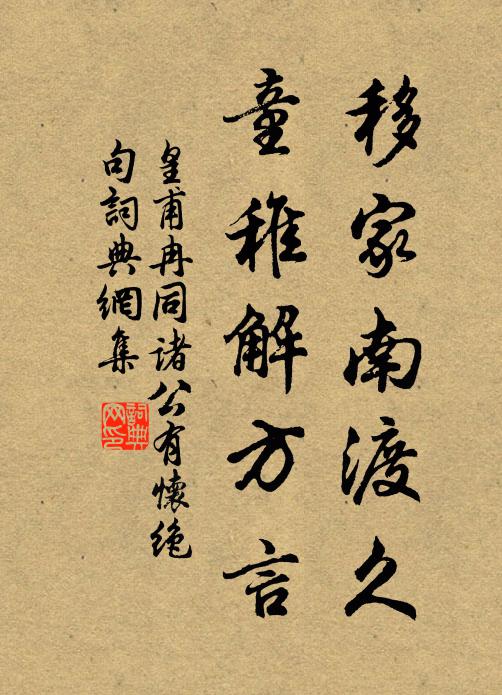 移家南渡久
童稚解方言
皇甫冉同諸公有懷絶
句詞典網集
詞典網印